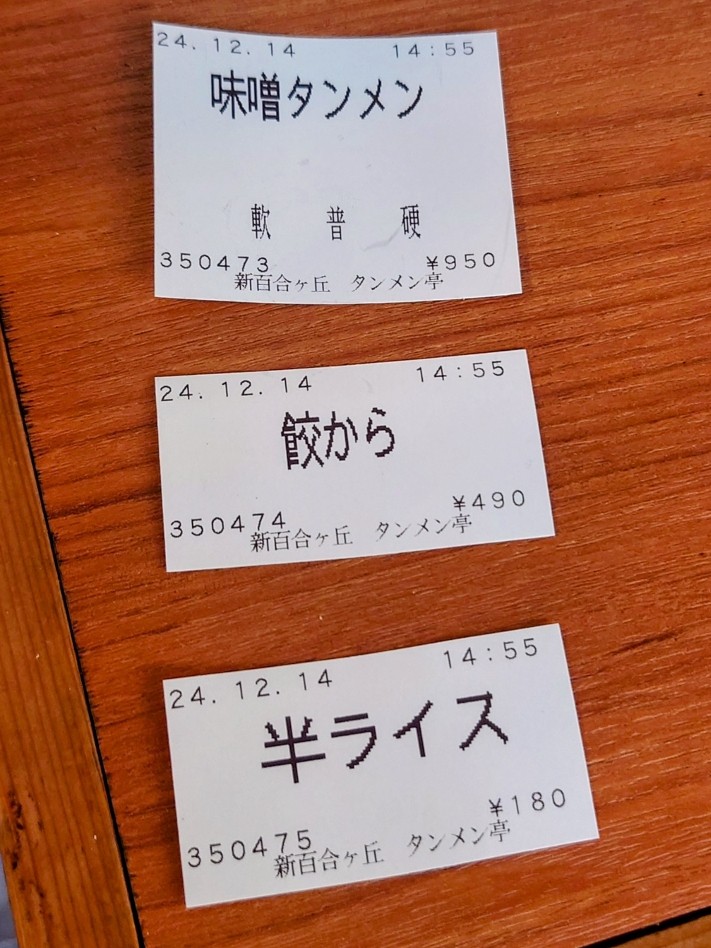 24.12.14 14:55
味噌タンメン
軟 普 硬
350473 ¥950
新百合ヶ丘 タンメン亭
24.12.14 14:55
餃から
¥490
350474
新百合ヶ丘 タンメン亭
24.12.14 14:55
半ライス
¥180
350475
新百合ヶ丘 タンメン亭